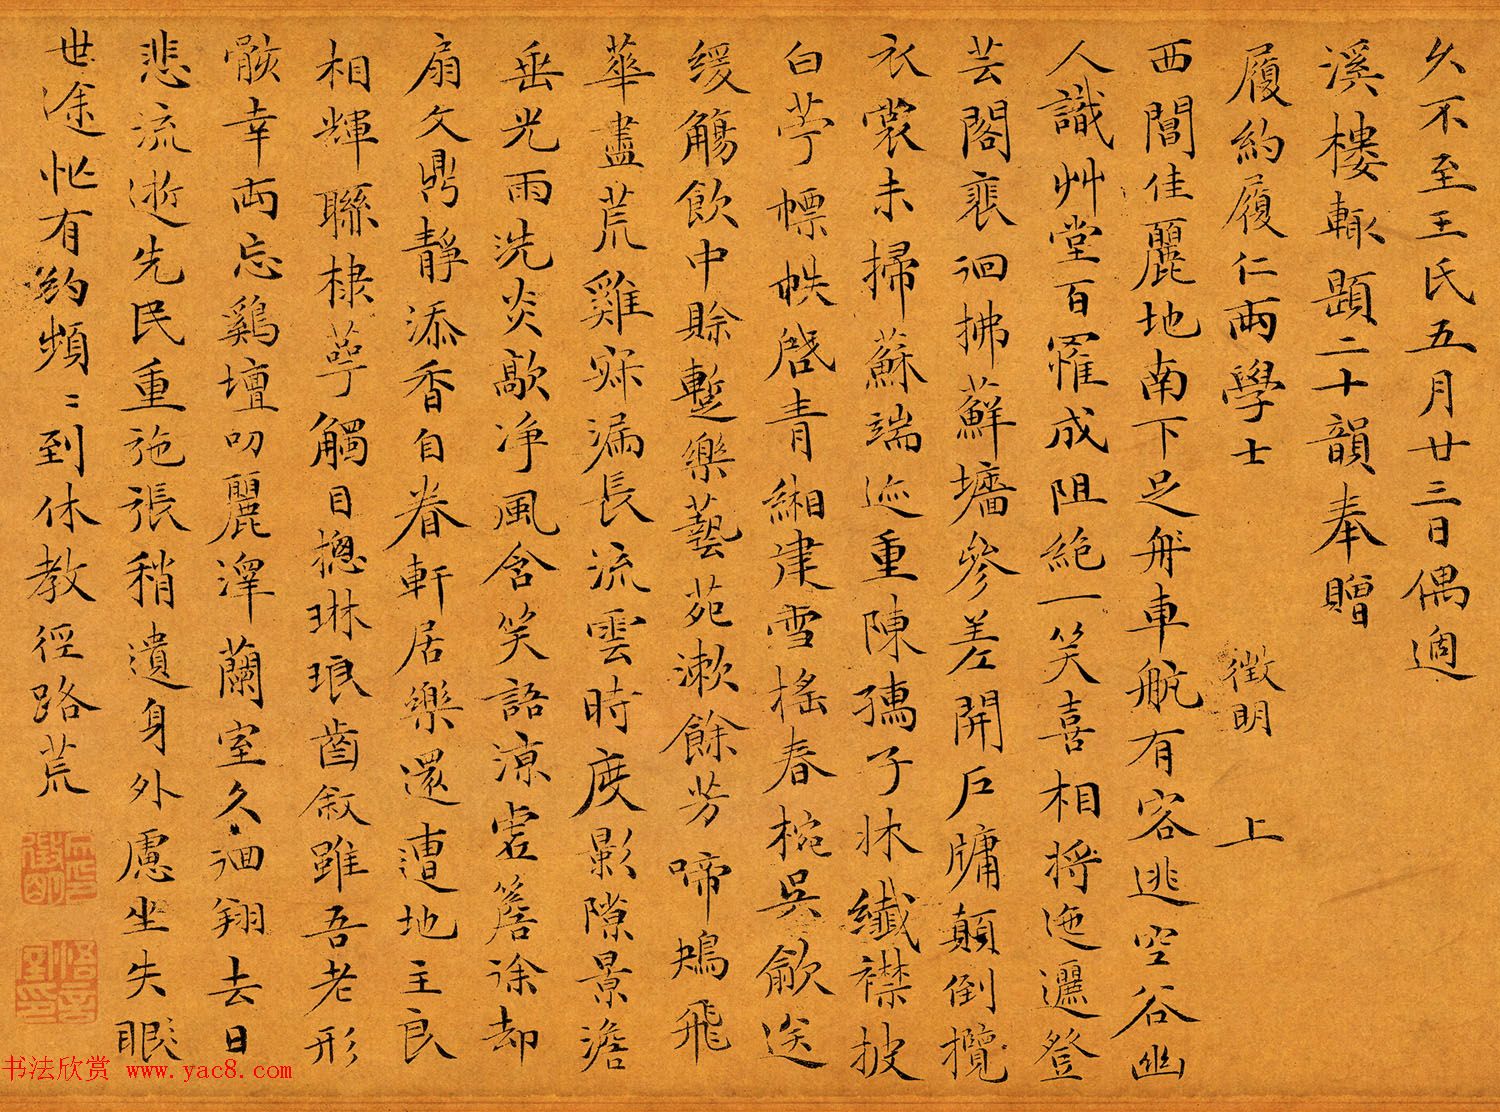 久不至王氏五月廿三日偶過
溪樓輒題二十韻奉贈
履約履仁兩學士
徵明 上
西閶佳麗地南下足舟車航有容逃空谷幽
人識艸堂百罹成阻絶一笑喜相將迤邐登
芸閣裴徊拂蘚墻參差開戶牗顛倒攬
衣裳未掃蘇端迹重陳孺子牀纖襟披
白苧幖帙啓青緗建雪搖春椀吳歈送
緩觴飲中賒蹔樂藝苑漱餘芳啼鴂飛
華盡荒雞寐漏長流雲時度影隙景澹
垂光雨洗炎歊净風含笑語涼虗簷徐却
扇文鼎静添香自眷軒居樂還遭地主良
相輝聯棣萼觸目摠琳琅齒敘雖吾老形
骸幸兩忘鷄壇叨麗澤蘭室久徊翔去日
悲流逝先民重弛張稍遺身外慮坐失眼
世途忙有約頻〻到休教徑路荒
书法欣赏 www.yac8.com